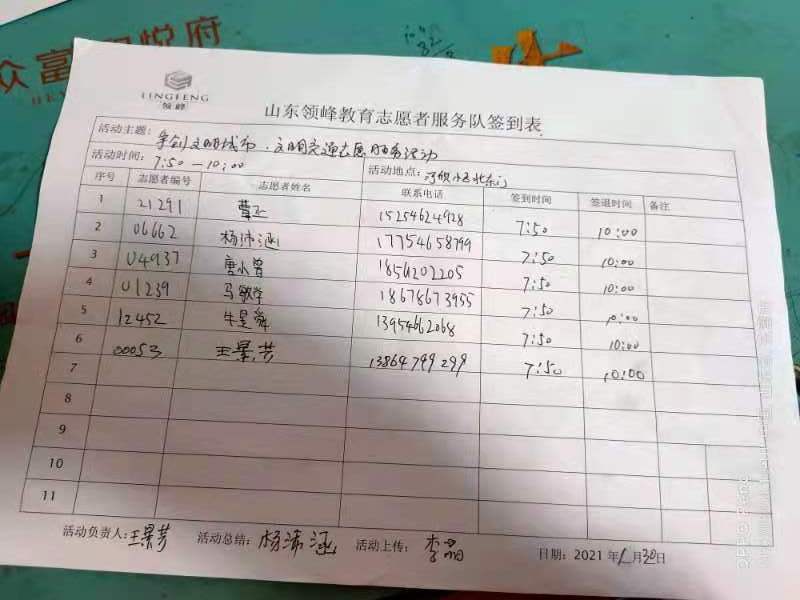 众富 悦府
LINGFENG
领峰
山东领峰教育志愿者服务队签到表
活动主题: 争创文明城市.文明交通志愿服务活动
活动时间: 7:50—10:00 活动地点: 小区北东门
序号 志愿者编号 志愿者姓名 联系电话 签到时间 签退时间 备注
1 21291 15254624928 7:50 10:00
2 06662 杨沛涵 17754658799 7:50 10:00
3 04937 唐小曾 7:50 10:00
4 01239 马敏学 18678673955 7:50 10:00
5 12452 牛星舜 13954662068 7:50 10:00
6 00053 王景芳 13864799299 7:50 10:00
7
8
9
10
11
活动负责人: 王景芳 活动总结: 杨沛涵 活动上传: 李 日期: 2021年 月30日